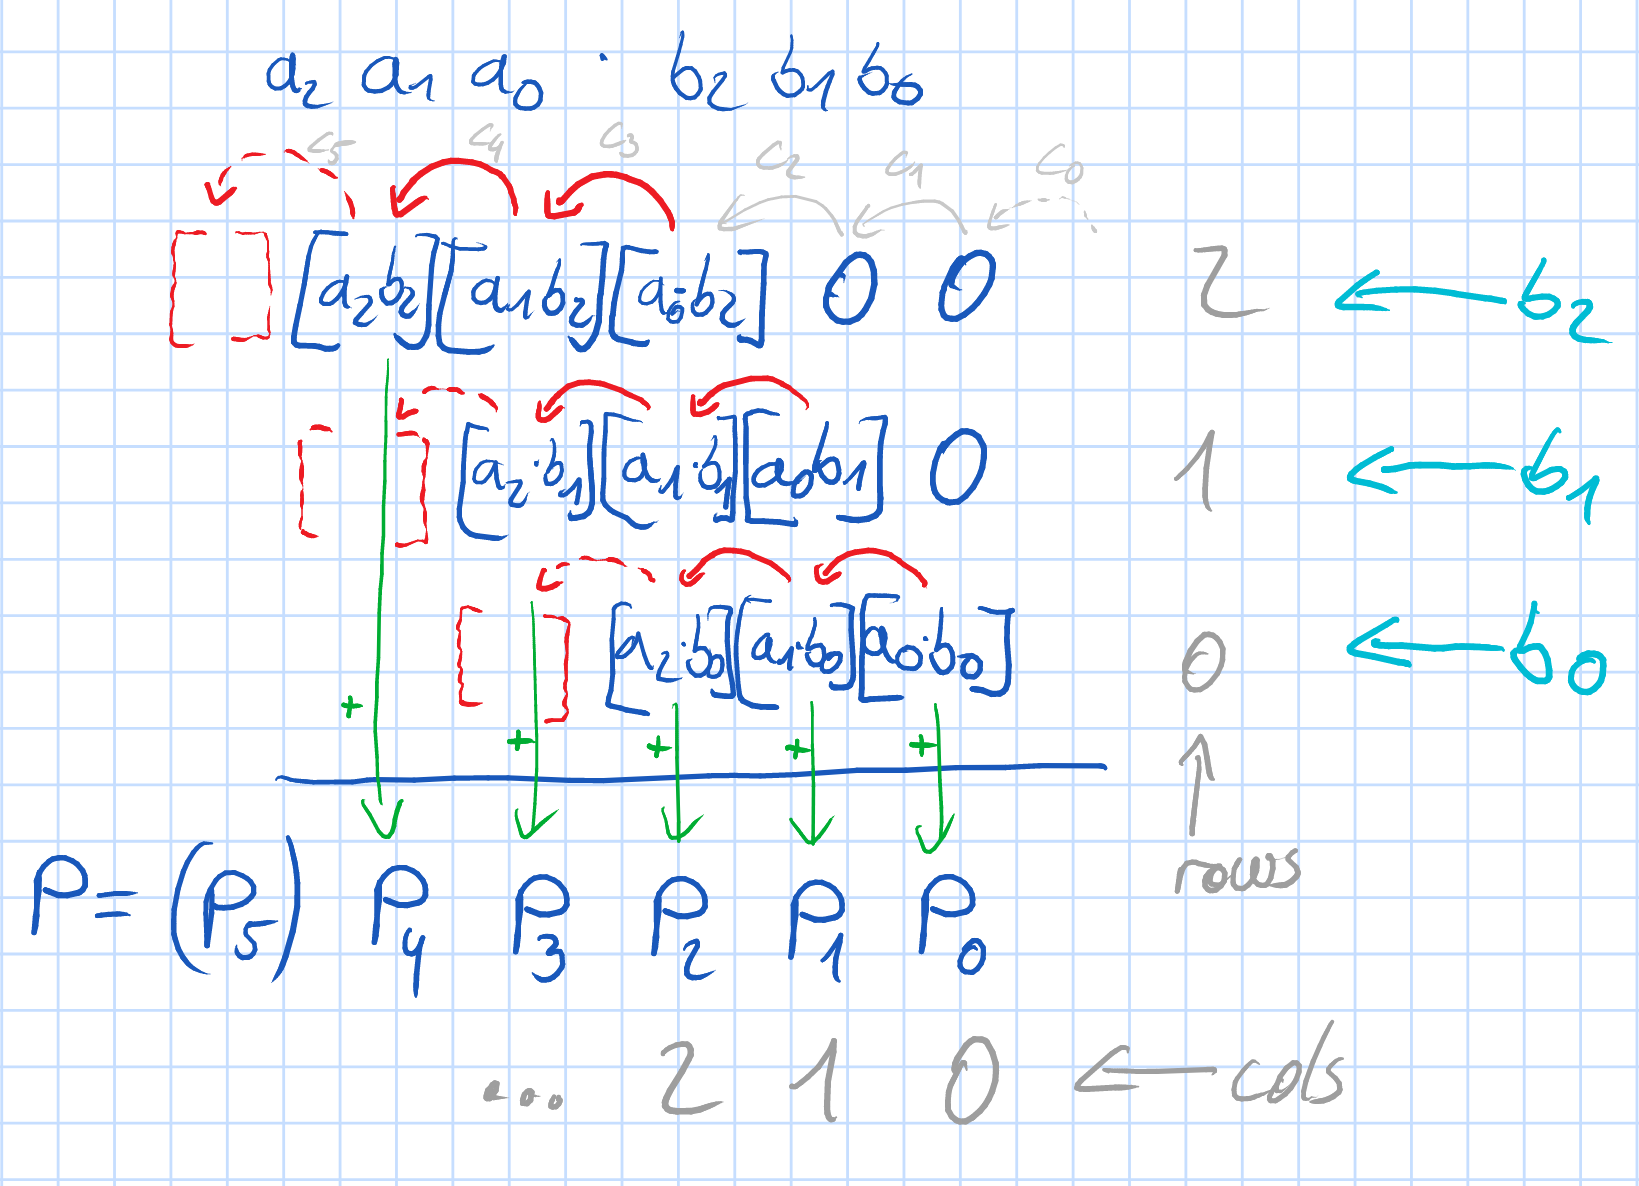 a₂ a₁ a₀ · b₂ b₁ b₀
c₅ c₄ c₃ c₂ c₁ c₀
[ ] [a₂b₂] [a₁b₂] [a₀·b₂] 0 0 2 ← b₂
[ ] [a₂·b₁] [a₁·b₁] [a₀b₁] 0 1 ← b₁
[ ] [a₂·b₀] [a₁·b₀] [a₀·b₀] 0 ← b₀
+ + + + +
P = (P₅) P₄ P₃ P₂ P₁ P₀ rows
... 2 1 0 ← cols